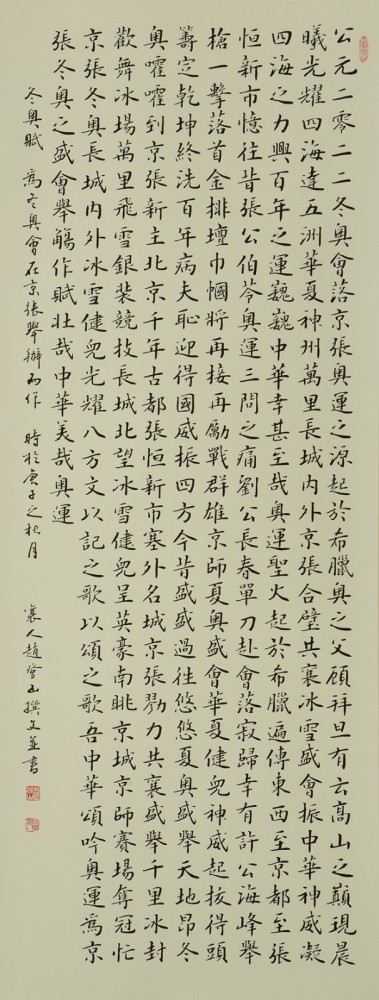 公元二零二二冬奧會落京張奧運之源起於希臘奧之父顧拜旦有云高山之巔現晨
曦光耀四海達五洲華夏神州萬里長城内外京張合璧共襄冰雪盛會振中華神威凝
四海之力興百年之運巍巍中華幸甚至哉奧運聖火起於希臘遍傳東西至京都至張
恒新市憶往昔張公伯苓奧運三問之痛劉公長春單刀赴會落寂歸幸有許公海峰舉
槍一擊落首金排壇巾幗將再接再勵戰群雄京師夏奧盛會華夏健兒神威起拔得頭
籌定乾坤終洗百年病夫恥迎得國威振四方今昔盛盛過往悠悠夏奧盛舉天地昂冬
奧嚯嚯到京張新主北京千年古都張恒新市塞外名城京張勠力共襄盛舉千里冰封
歡舞冰場萬里飛雪銀裝競技長城北望冰雪健兒呈英豪南眺京城京師賽場奪冠忙
京張冬奧長城内外冰雪健兒光耀八方文以記之歌以頌之歌吾中華頌吟奧運為京
張冬奧之盛會舉觴作賦壯哉中華美哉奧運
冬奧賦 為冬奧會在京張舉辦而作 時於庚子之秋月 襄人趙登山撰文並書